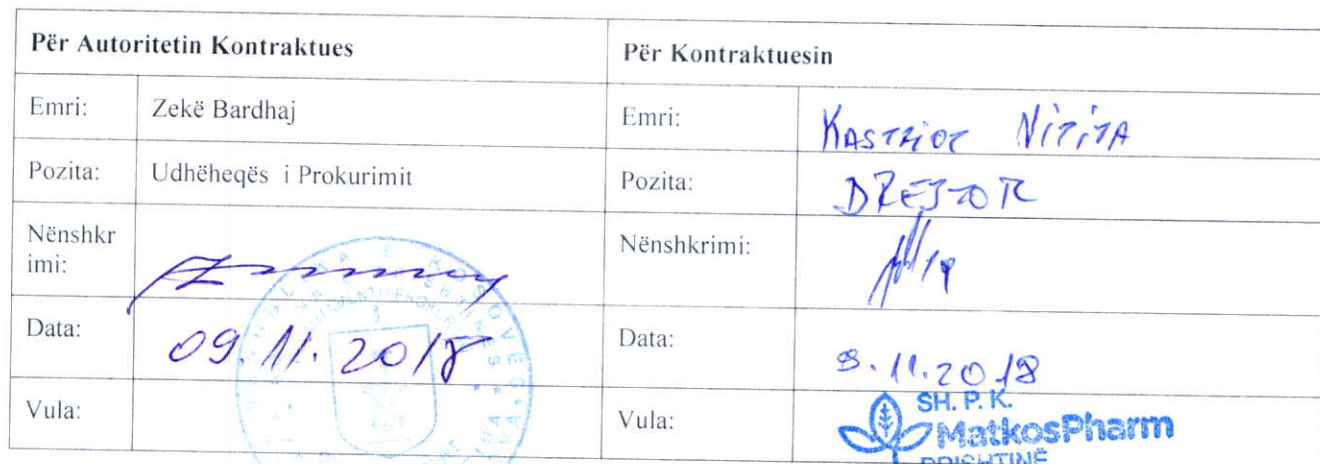 Për Autoritetin Kontraktues
Për Kontraktuesin
Emri: Zekë Bardhaj
Emri: KASTRIOT NITITA
Pozita: Udhëheqës i Prokurimit
Pozita: DREJTOR
Nënshkr
imi:
Nënshkrimi:
Data: 09.11.2018
Data: 9.11.2018
Vula:
Vula:
SH. P. K.
MatkosPharm
PRISHTINË